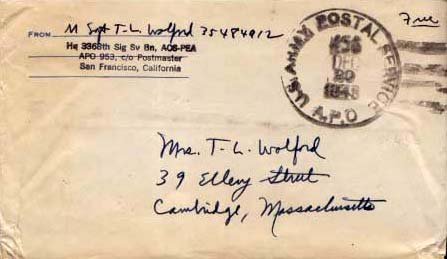 Free
FROM M Sgt T-L. Wolford 35484912
Hq 3368th Sig Sv Bn, AOS-PEA
APO 953, c/o Postmaster
San Francisco, California
U.S. ARMY POSTAL SERVICE
A.P.O
DEC
1945
Mrs. T-L. Wolford
39 Ellery Street
Cambridge, Massachusetts